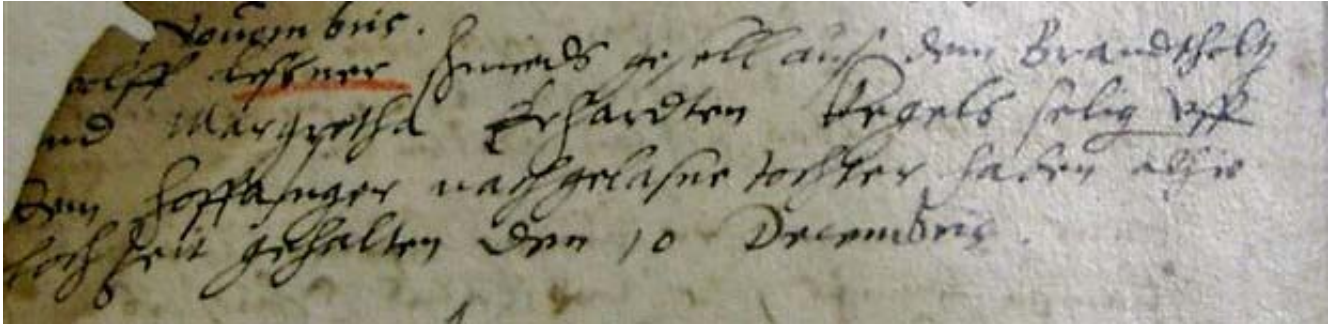 Nouembris.
olff Leßner schmieds gesell auß dem Brandtholtz
nd Margretha Erhardten Kegels selig vff
dem nachgelaßne tochter haben alhie
hochzeit gehalten den 10 Decembris.